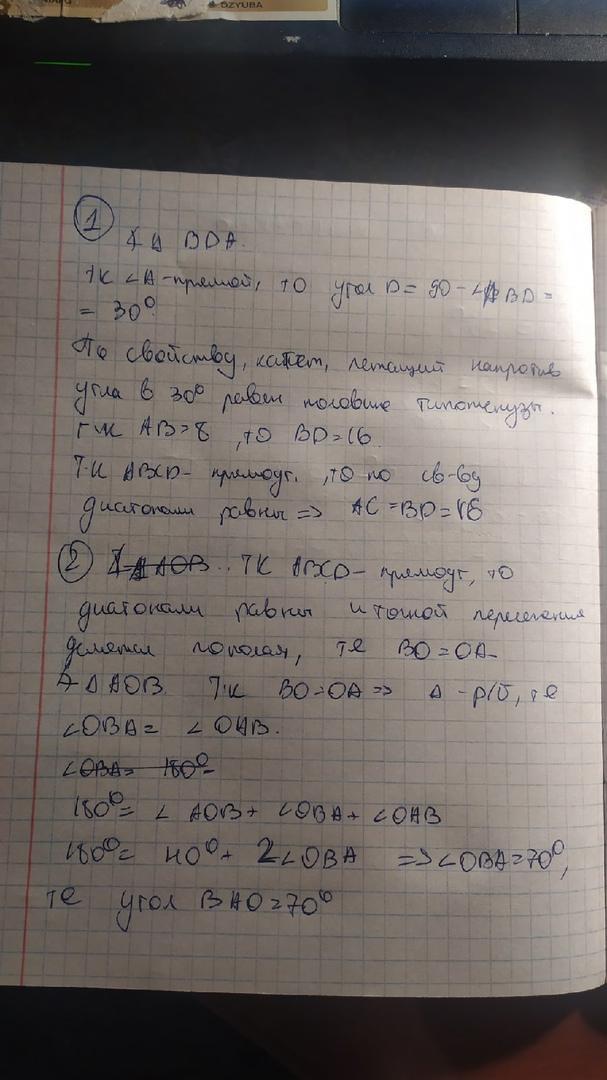 ÖZYUBA
1
∡ Δ BDA.
тк ∠A-прямой, то угол D = 90 - ∠ABD =
= 30°
По свойству, катет, лежащий напротив
угла в 30° равен половине гипотенузы.
тк AB=8, то BD=16.
Т.к ABCD- прямоуг., то по св-ву
диагонали равны => AC=BD=16
2 ∡ Δ AOB.. тк ABCD- прямоуг, то
диагонали равны и точкой пересечения
делятся пополам, те BO=OA
∡ Δ AOB. Т.к BO=OA => Δ -р/б, те
∠OBA= ∠OAB.
∠OBA= 180°-
180°= ∠ AOB+ ∠OBA+ ∠OAB
180°= 40°+ 2∠OBA => ∠OBA=70°,
те угол BAO=70°